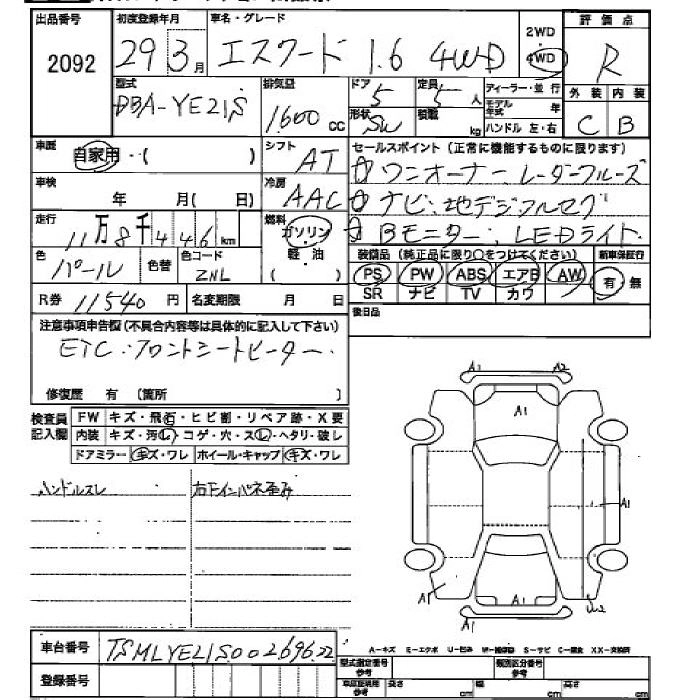 出品番号 初度登録年月 車名・グレード 評価点
2092 29 3月 エスクード 1.6 4WD 2WD 4WD R
型式 排気量 ドア 定員 ディーラー・並行 外装 内装
DBA-YE21S 1600cc 5 5人 モデル年式 年 C B
形状 積載 SW kg ハンドル 左・右
車歴 自家用・( ) シフト AT セールスポイント (正常に機能するものに限ります)
☆ワンオーナー、レーダークルーズ
車検 年 月(日) 冷房 AAC ☆ナビ・地デジフルセグ
走行 11万8千446km 燃料 ガソリン 軽・油 ☆Bモニター、LEDライト
色 パール 色替 色コード ZNL
装備品 (純正品に限り○をつけてください) 新車保証行
PS PW ABS エアB AW 有・無
SR ナビ TV カワ
R券 11540円 名変期限 月 日 後日品
注意事項申告欄(不具合内容等は具体的に記入して下さい)
ETC・フロントシートヒーター
修復歴 有 (箇所 )
検査員記入欄 FW キズ・飛石・ヒビ割・リペア跡・X要
内装 キズ・汚レ・コゲ・穴・スレ・ヘタリ・破レ
ドアミラー キズ・ワレ ホイール・キャップ キズ・ワレ
ハンドルスレ 右下インパネ歪み
A1 A2
A1
A1
A1 A1 A1 U2
A-キズ E-エクボ U-凹み W-補修跡 S-サビ C-腐食 XX-交換済
車台番号 TSMLYE21S00269622
型式指定番号 参考 類別区分番号 参考
登録番号 車庫証明用 参考 長さ cm 幅 cm 高さ cm